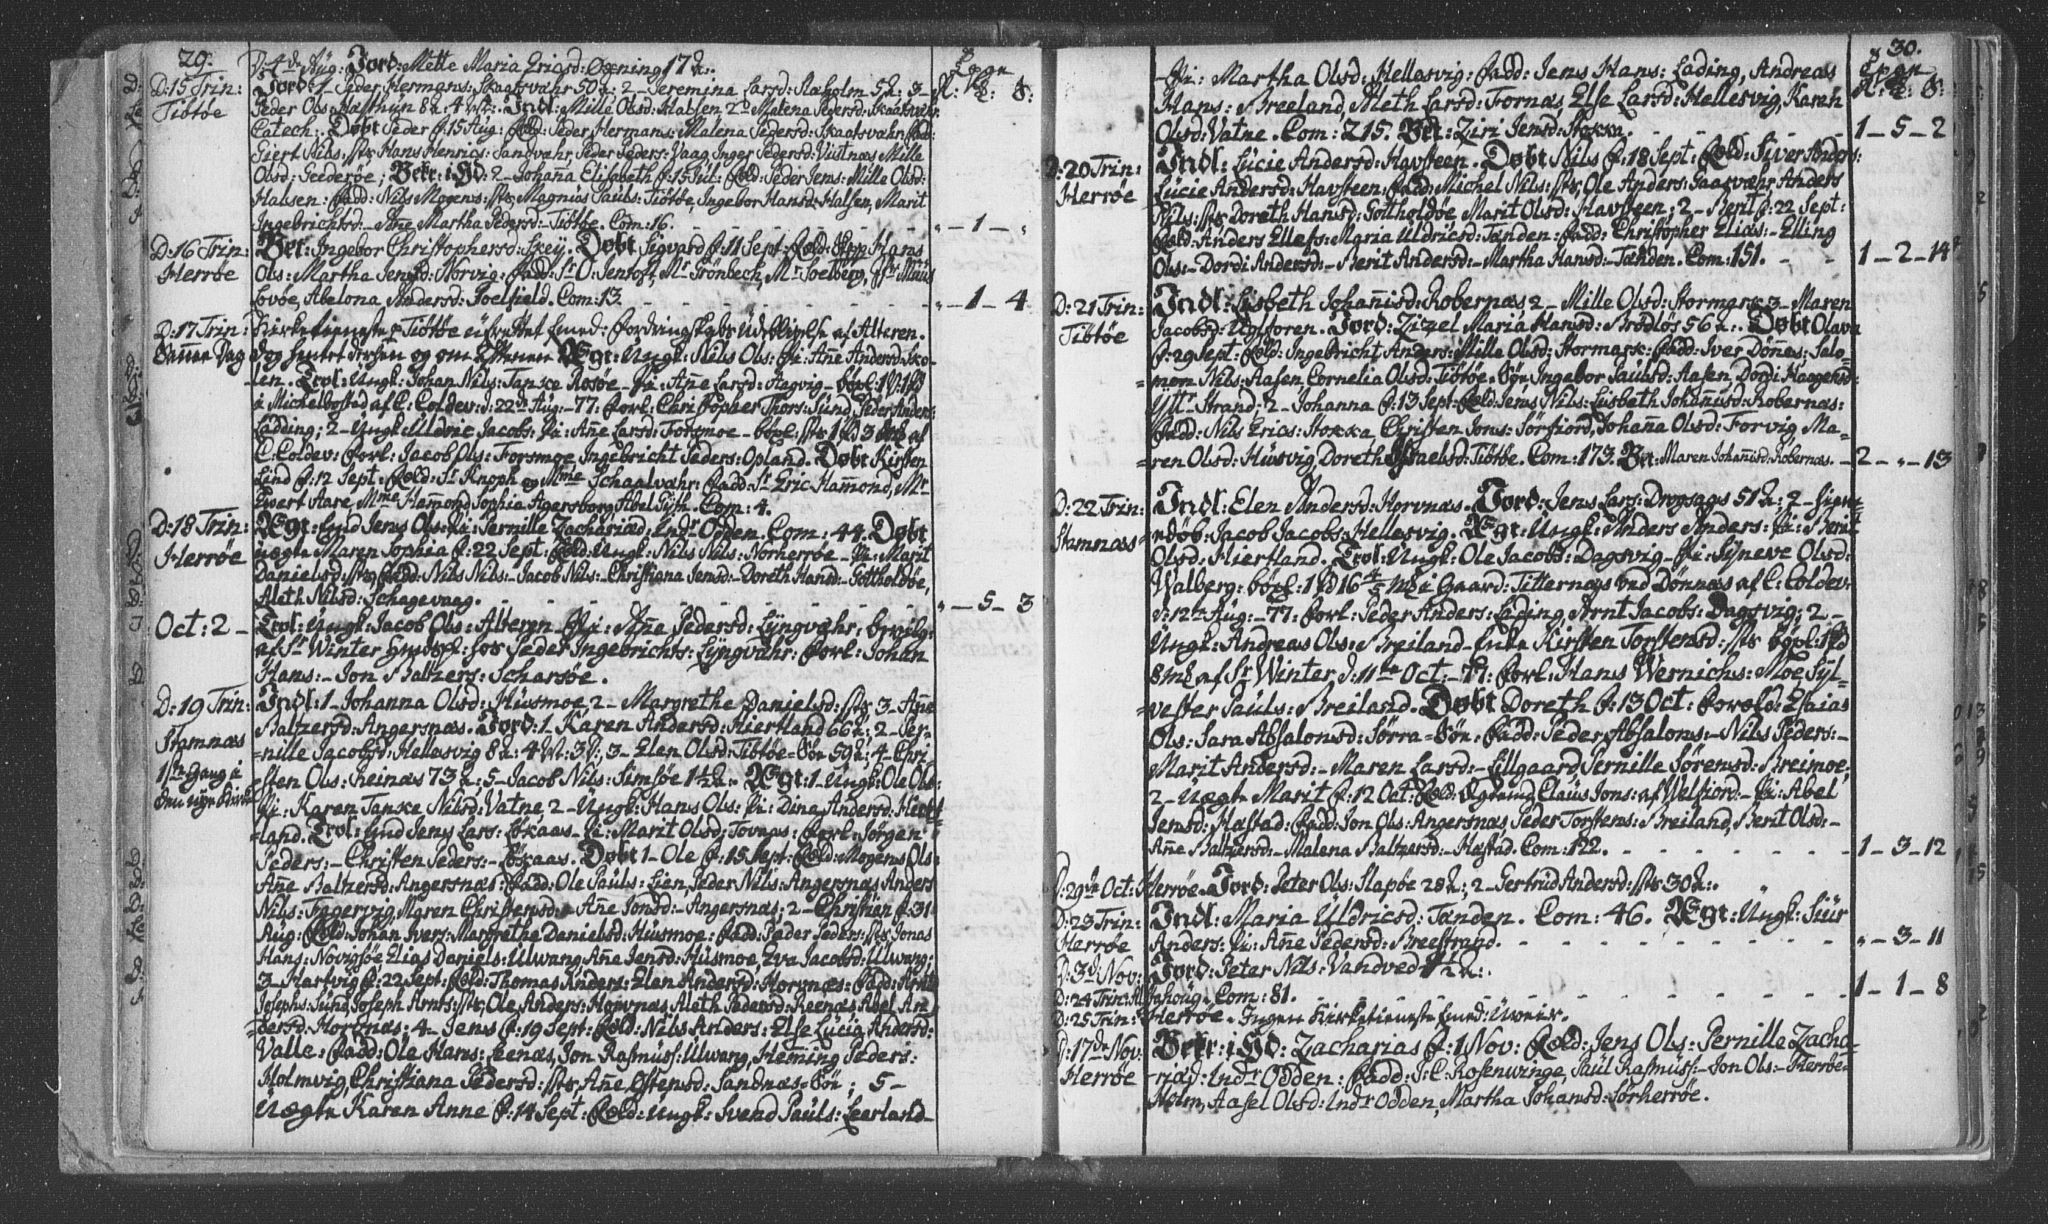 29.
D: 4de Aug: Jord: Mette Maria Ericsd: Øxning 17 A:
D: 15 Trin: Tiötöe
Jord: 1- Peder Hermans: Skaalsvahr 50 A: 2- Jeremina Larsd: Aaholm 5 A: 3-
Peder Ols: 8 A: 4 M: Indl: Mille Olsd: Halsen 2- Malena Pedersd: Skaalsvahr
Catech: Døbt Peder f: 15 Aug: Forld: Peder Hermans: Malena Pedersd: Skaalsvahr fadd:
Giert Nils: sts Hans Henrics: Sandvahr, Peder Peders: Vaag, Inger Pedersd: Vistnæs Mille
Olsd: Geederøe; Bekr: i Hd: 2- Johana Elisabeth f: 15 Jul: Forld: Peder Jens: Mille Olsd:
Halsen: fadd: Nils Mogens: sts Magnus Pauls: Tiötöe, Ingebor Hansd: Halsen, Marit
Ingebrichtsd: - Ane Martha Pedersd: Tiötöe. Com: 16. " - 1 - "
D: 16 Trin: Herrøe
Bet: Ingebor Christophersd: Skeij. Døbt Sigvard f: 11 Sept: Forld: Hans
Ols: Martha Jensd: Norvig: fadd: Sr O: Jentoft, Mr Grönbech, Mr Soelberg,
Lovöe, Abelona Andersd: Joelfield. Com: 13. " - 1 - 4
D: 17 Trin: Kirketieneste p: Tiötöe ei forrettet formed: fordringskabs Uddeelelse af Alteren.
Samme Dag dog hentet dersen og om Eftermm Ægt: Ungk: Nils Ols: Pi: Añe Andersd: Sko-
len. Trol: Ungk: Johan Nils: Tanke Rosøe - Pi: Añe Larsd: Aagvig -
i Michelbostad af C: Coldev: d: 22de Aug: -77: forl: Christopher Thors: Sund, Peder Anders:
Lading; 2- Ungk: Uldric Jacobs: Pi: Añe Larsd: Forsmoe -
C: Coldev: forl: Jacob Ols: Forsmoe, Ingebricht Peders: Opland. Døbt Kirsten
Lind f: 12 Sept: Forld: Sr Knoph og Mme Schaalvahr: fadd: Sr Eric Hamond, Mr
Evert Aare, Mme Hamond, Sophia Agersborg, Abel Tÿch. Com: 4.
D: 18 Trin: Herrøe
Ægt: Lind Jens Ols: Pi: Pernille Zachariæd: Indr Odden. Com: 44. Døbt
uægte Maren Sophia f: 22 Sept: Forld: Ungk: Nils Nils: Norherrøe - Pi: Marit
Danielsd: sts fadd: Nils Nils: - Jacob Nils: - Christiana Jensd: - Doreth Hansd: - Gottholdöe,
Aleth Nilsd: Schagevaag. " - 5 - 3
Oct: 2 - Trol: Ungk: Jacob Ols: Alteren - Pi: Añe Pedersd: Lÿngvahr:
af Sr Winter hos Peder Ingebrichts: Lÿngvahr: forl: Johan
Hans: - Jon Baltzers: Scharsöe.
D: 19 Trin: Stamnæs
1ste Gang i den nÿe Kirke
Indl: 1- Johanna Olsd: Husmoe, 2- Margrethe Danielsd: sts 3- Añe
Baltzersd: Angersnæs. Jord: 1- Karen Andersd: Hiertland 66 A: 2- Per-
=nille Jacobsd: Hellesvig 8 A: 4 M: 3 U: 3- Elen Olsd: Tiötöe=bön 59 A: 4- Chri-
sten Ols: Reinæs 73 A: 5- Jacob Nils: Simsöe 1½ A: Ægt: 1- Ungk: Ole Ols:
Pi: Karen Tanke Nilsd: Vatne, 2- Ungk: Hans Ols: Pi: Dina Andersd: Hiert-
land. Trol: Lind Jens Lars: Lökaas - Pi: Marit Olsd: Tovnæs: forl: Jörgen
Peders: - Christen Peders: - Lökaas. Døbt 1- Ole f: 15 Sept: Forld: Mogens Ols:
Añe Baltzersd: Angersnæs: fadd: Ole Pauls: Lien, Peder Nils: Angersnæs Anders
Nils: Fagervig, Maren Christensd: - Añe Jonsd: - Angersnæs; 2- Christian f: 31
Aug: Forld: Johan Ivers: Margrethe Danielsd: Husmoe: fadd: Peder Peders: sts Jonas
Hans: Novigsöe Elias Daniels: Ulwang, Añe Jensd: Husmoe, Eva Jacobsd: Ulwang;
3- Hartvig f: 22 Sept: Forld: Thomas Anders: Elen Andersd: Horvnæs: fadd: Arnt
Josephs: Sund, Joseph Arnts: sts, Ole Anders: Horvnæs, Aleth Pedersd: Reenæs, Abel An-
=dersd: Horvnæs: 4- Jens f: 19 Sept: Forld: Nils Anders: Else Lucia Andersd:
Valle: fadd: Ole Hans: Leenæs, Jon Rasmus: Ulwang, Heming Peders:
Holmvig, Christiana Pedersd: sts Añe Østensd: Sandnæs=bön; 5-
Uægte Karen Anne f: 14 Sept: Forld: Ungk: Svend Pauls: Leerland-
30.
-Pi: Martha Olsd: Hellesvig: fadd: Jens Hans: Lading, Andreas
Hans: Breeland, Aleth Larsd: Fornæs, Else Larsd: Hellesvig, Karen
Olsd: Vatne. Com: 215. Bet: Ziri Jensd: Stokka. 1 - 5 - 2
D: 20 Trin: Herrøe
Indl: Lucie Andersd: Havsteen. Døbt Nils f: 18 Sept: Forld: Siver Anders:
Lucie Andersd: Havsteen: fadd: Michel Nils: sts, Ole Anders: Gaasvæhr, Anders
Nils: sts Doreth Hansd: Gottholdöe Marit Olsd: Havsteen; 2- Berit f: 22 Sept:
Forld: Anders Ellefs: Maria Uldricsd: Tanden: fadd: Christopher Elias: - Elling
Ols: - Dordi Andersd: - Berit Andersd: - Martha Hansd: - Tanden. Com: 151. 1 - 2 - 14
D: 21 Trin: Tiötöe
Indl: Lisbeth Johañisd: Robernæs 2- Mille Olsd: Stormark 3- Maren
Jacobsd: Uglforen. Jord: Zizel Maria Hansd: Brødløs 56 A: Døbt Olava
f: 29 Sept: Forld: Ingebricht Anders: Mille Olsd: Stormark: fadd: Iver Dönes: Salo-
=mon Nils: Aasen Cornelia Olsd: Tiötöe=bön Ingebor Paulsd: Aasen, Dordi Haagensd:
Ÿttr Strand; 2- Johanna f: 13 Sept: Forld: Jens Nils: Lisbeth Johanisd: Robernæs:
fadd: Nils Erics: Stokka Christen Jons: Sörfiord, Johaña Olsd: Forvig Ma-
=ren Olsd: Husvig, Doreth Israelsd: Tiötöe. Com: 173. Bet: Maren Johañisd: Robernæs. - 2 - " - 13
D: 22 Trin: Stamnæs
Indl: Elen Andersd: Horvnæs. Jord: Jens Lars: Drogsaas 51 A: 2-
Jacob Jacobs: Hellesvig. Ægt: Ungk: Anders Anders: Pi: Berit
Olsd: Hiertland. Trol: Ungk: Ole Jacobs: Dagsvig - Pi: Sÿneve Olsd:
Walberg: i Gaard: Titternæs ved Dönnæs af C: Coldev:
d: 12te Aug: -77: forl: Peder Anders: Lading, Arnt Jacobs: Dagsvig; 2-
Ungk: Andreas Ols: Breiland - Enke Kirsten Torstensd: sts
8 af Sr Winter d: 11te Oct: -77: forl: Hans Wernichs: Moe, Sÿl-
=vester Pauls: Breiland. Døbt Doreth f: 13 Oct: Forld: Esaias
Ols: Sara Absalonsd: Sörra=bön. fadd: Peder Absalons: - Nils Peders: -
Marit Andersd: - Maren Larsd: - Lillgaard, Pernille Sörensd: Breimoe;
2- Uægte Marit f: 12 Oct: Forld: Claus Jons: af Welfiord - Pi: Abel
Jensd: Hastad: fadd: Jon Ols: Angersnæs, Peder Torstens: Breiland, Berit Olsd: -
Añe Baltzersd: - Malena Baltzersd: - Hastad. Com: 122. 1 - 3 - 12
D: 29de Oct: Herrøe. Jord: Peter Ols: Slapöe 28 A; 2- Gertrud Andersd: sts 30 A:
D: 23 Trin: Herrøe
Indl: Maria Uldricsd: Tanden. Com: 46. Ægt: Ungk: Siur
Anders: Pi: Añe Pedersd: Breestrand. " - 3 - 11
D: 3de Nov: Jord: Peter Nils: Vandved ½ A:
D: 24 Trin: Alsahoug. Com: 81. 1 - 1 - 8
D: 25 Trin: Herrøe. Ingen Kirketieneste formed: Uveir.
D: 17de Nov: Herrøe
Bekr: i Hd: Zacharias f: 1 Nov: Forld: Jens Ols: Pernille Zacha-
riæd: Indr Odden: fadd: J: C: Rosenvinge, Paul Rasmus: - Jon Ols: - Herrøe-
Holm, Aasel Olsd: Indr Odden, Martha Johansd: Sörherrøe.